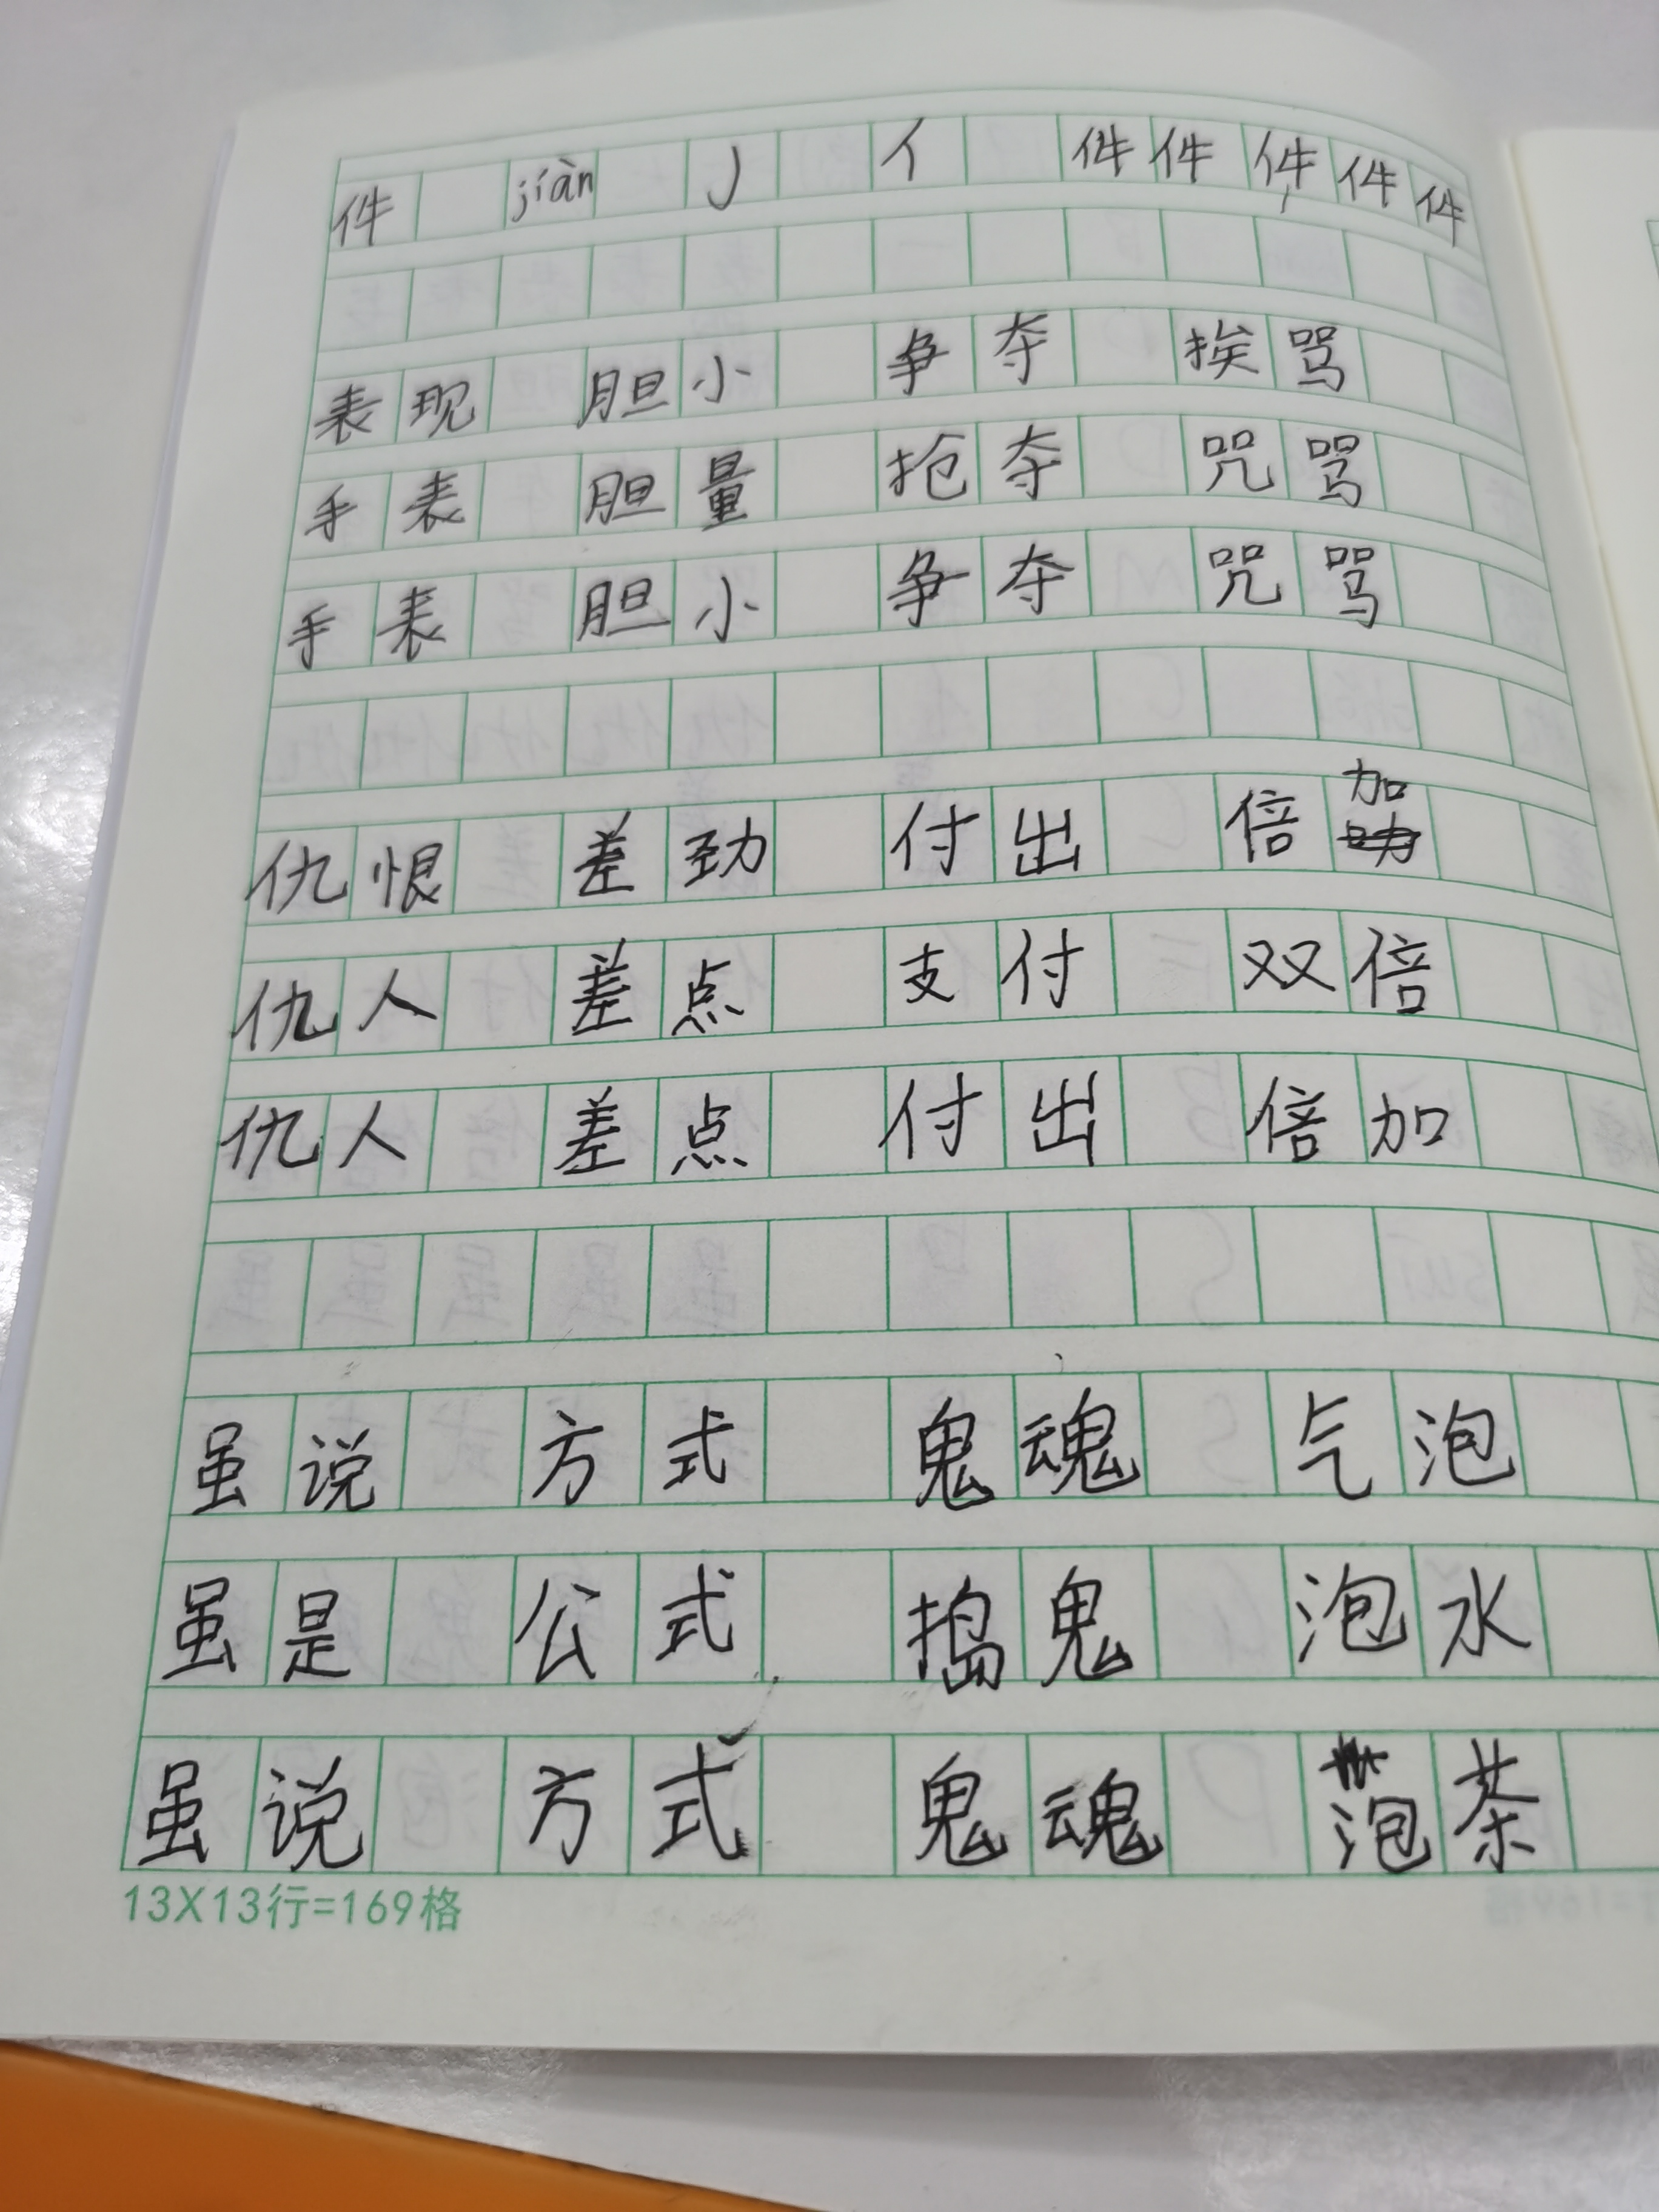 件 jiàn 丿 亻 件 件 件 件 件
表现 胆小 争夺 挨骂
手表 胆量 抢夺 咒骂
手表 胆小 争夺 咒骂
仇恨 差劲 付出 倍加
仇人 差点 支付 双倍
仇人 差点 付出 倍加
虽说 方式 鬼魂 气泡
虽是 公式 捣鬼 泡水
虽说 方式 鬼魂 泡茶
13X13行=169格